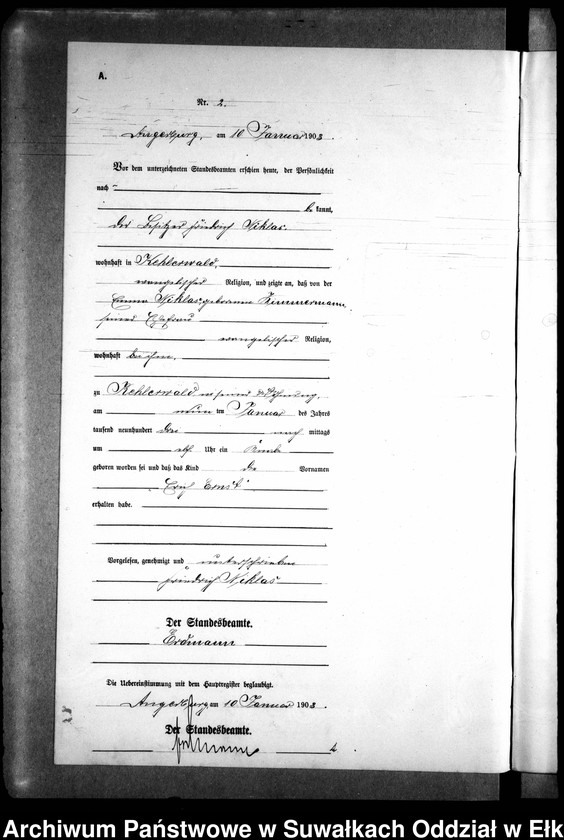 A.
Nr. 2.
Angerburg, am 10 Januar 1903.
Vor dem unterzeichneten Standesbeamten erschien heute, der Persönlichkeit
nach
be kannt,
der Besitzer Friedrich Niklas.
wohnhaft in Kehlerwald,
evangelischer Religion, und zeigte an, daß von der
Emma Niklas, geborenen Zimmermann
seiner Ehefrau
evangelischer Religion,
wohnhaft bei ihm,
zu Kehlerwald in seiner Wohnung,
am neun ten Januar des Jahres
tausend neunhundert drei nach mittags
um Uhr ein Knabe
geboren worden sei und daß das Kind die Vornamen
Ernst
erhalten habe.
Vorgelesen, genehmigt und unterschrieben
Friedrich Niklas
Der Standesbeamte.
Erdmann
Die Uebereinstimmung mit dem Hauptregister beglaubigt.
Angerburg am 10 Januar 1903.
Der Standesbeamte.
Erdmann
Archiwum Państwowe w Suwałkach Oddział w Ełk